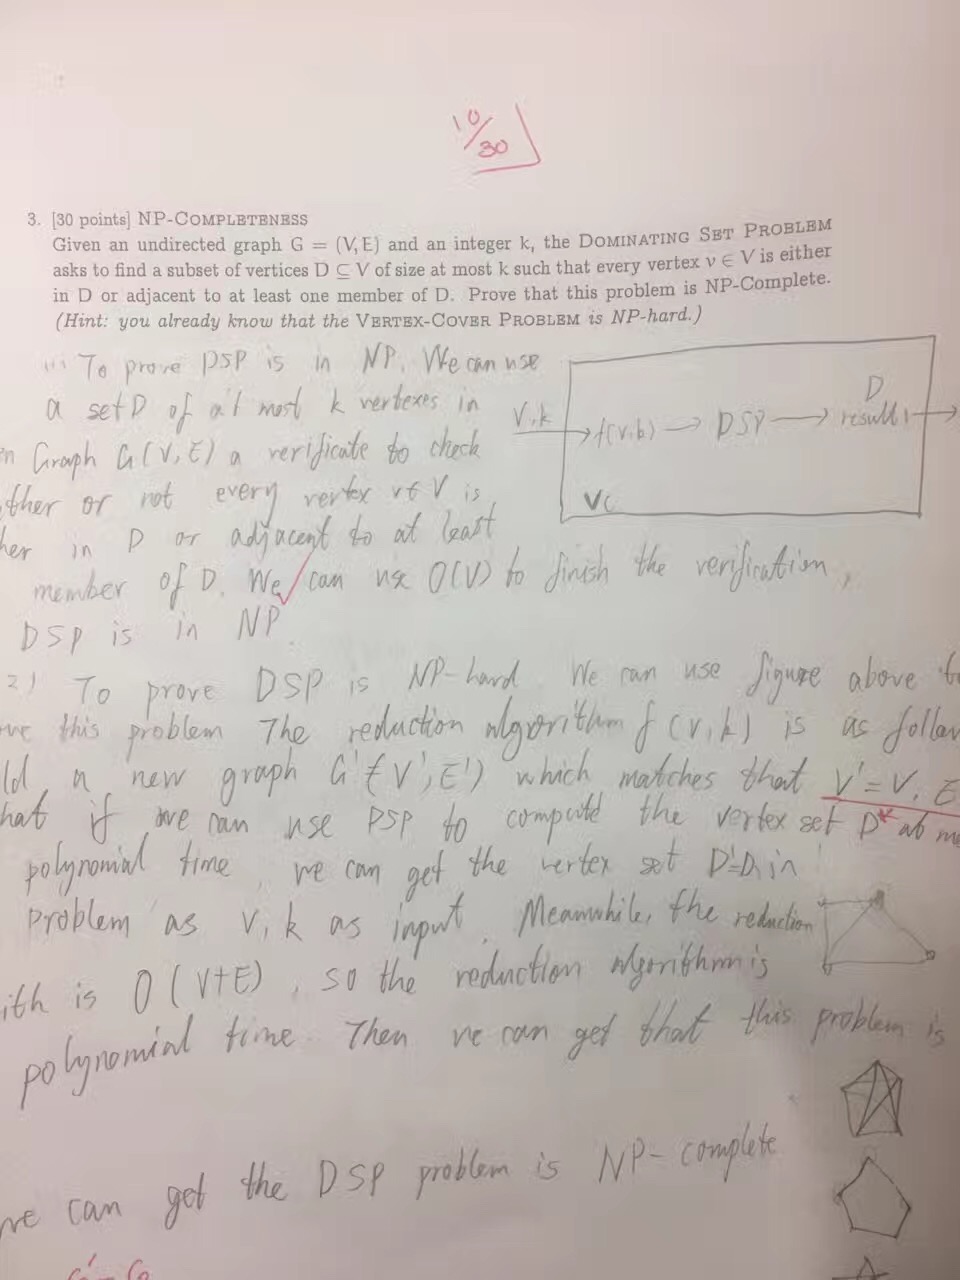 10/30
3. [30 points] NP-COMPLETENESS
Given an undirected graph G = (V, E) and an integer k, the DOMINATING SET PROBLEM
asks to find a subset of vertices D ⊆ V of size at most k such that every vertex v ∈ V is either
in D or adjacent to at least one member of D. Prove that this problem is NP-Complete.
(Hint: you already know that the VERTEX-COVER PROBLEM is NP-hard.)
To prove DSP is in NP. We can use
a set D of at most k vertexes in
Graph G(V, E) a verificate to check
ther or not every vertex v∈V is
her in D or adjacent to at least
member of D. We can use O(V) to finish the verification,
DSP is in NP
V, k
f(v.k) → DSP → result
D
VC
2) To prove DSP is NP-hard We can use figure above
this problem The reduction algorithm f (v, k) is as follow
ld a new graph G'(V', E') which matches that V' = V, E
hat if we can use DSP to computed the vertex set D* at
polynomial time, we can get the vertex set D'=D, in
problem as V, k as input. Meanwhile, the reduction
ith is O(V+E), so the reduction algorithm is
polynomial time. Then we can get that this problem is
we can get the DSP problem is NP-complete
G' = G